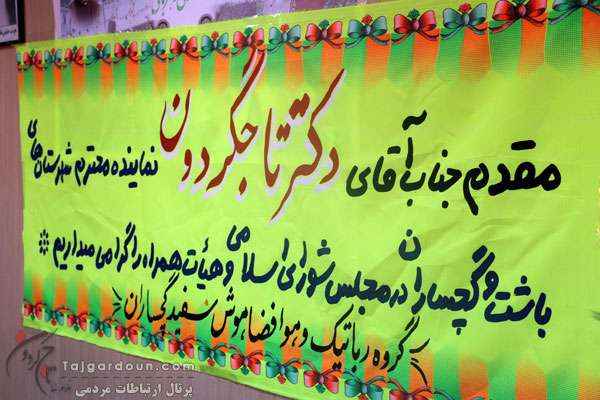 مقدم جناب آقای دکتر تاجگردون نماینده محترم شهرستان های
باشت و گچساران در مجلس شورای اسلامی و هیأت همراه را گرامی میداریم
گروه رباتیک و هوافضا هوش سفید گچساران
Tajgardoun.com
پرتال ارتباطات مردمی